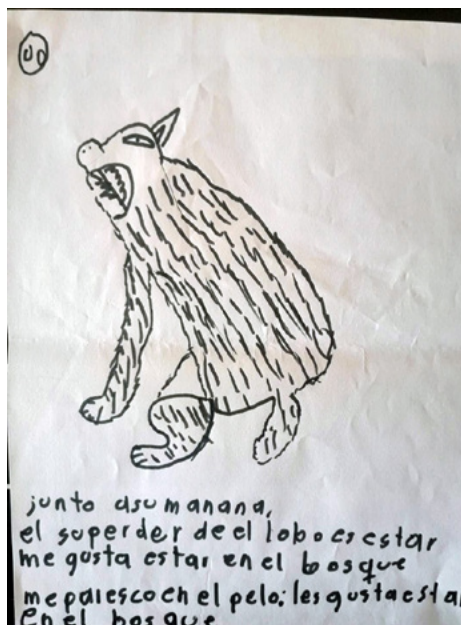 junto asu manana,
el superder de el lobo es estar
me gusta estar en el bosque
me paresco en el pelo: les gusta esta
en el bosque